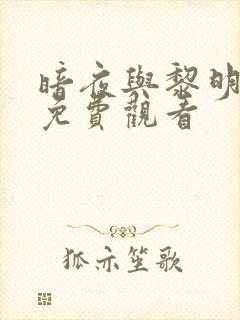 暗夜與黎明
免費觀看
狐亦笙歌